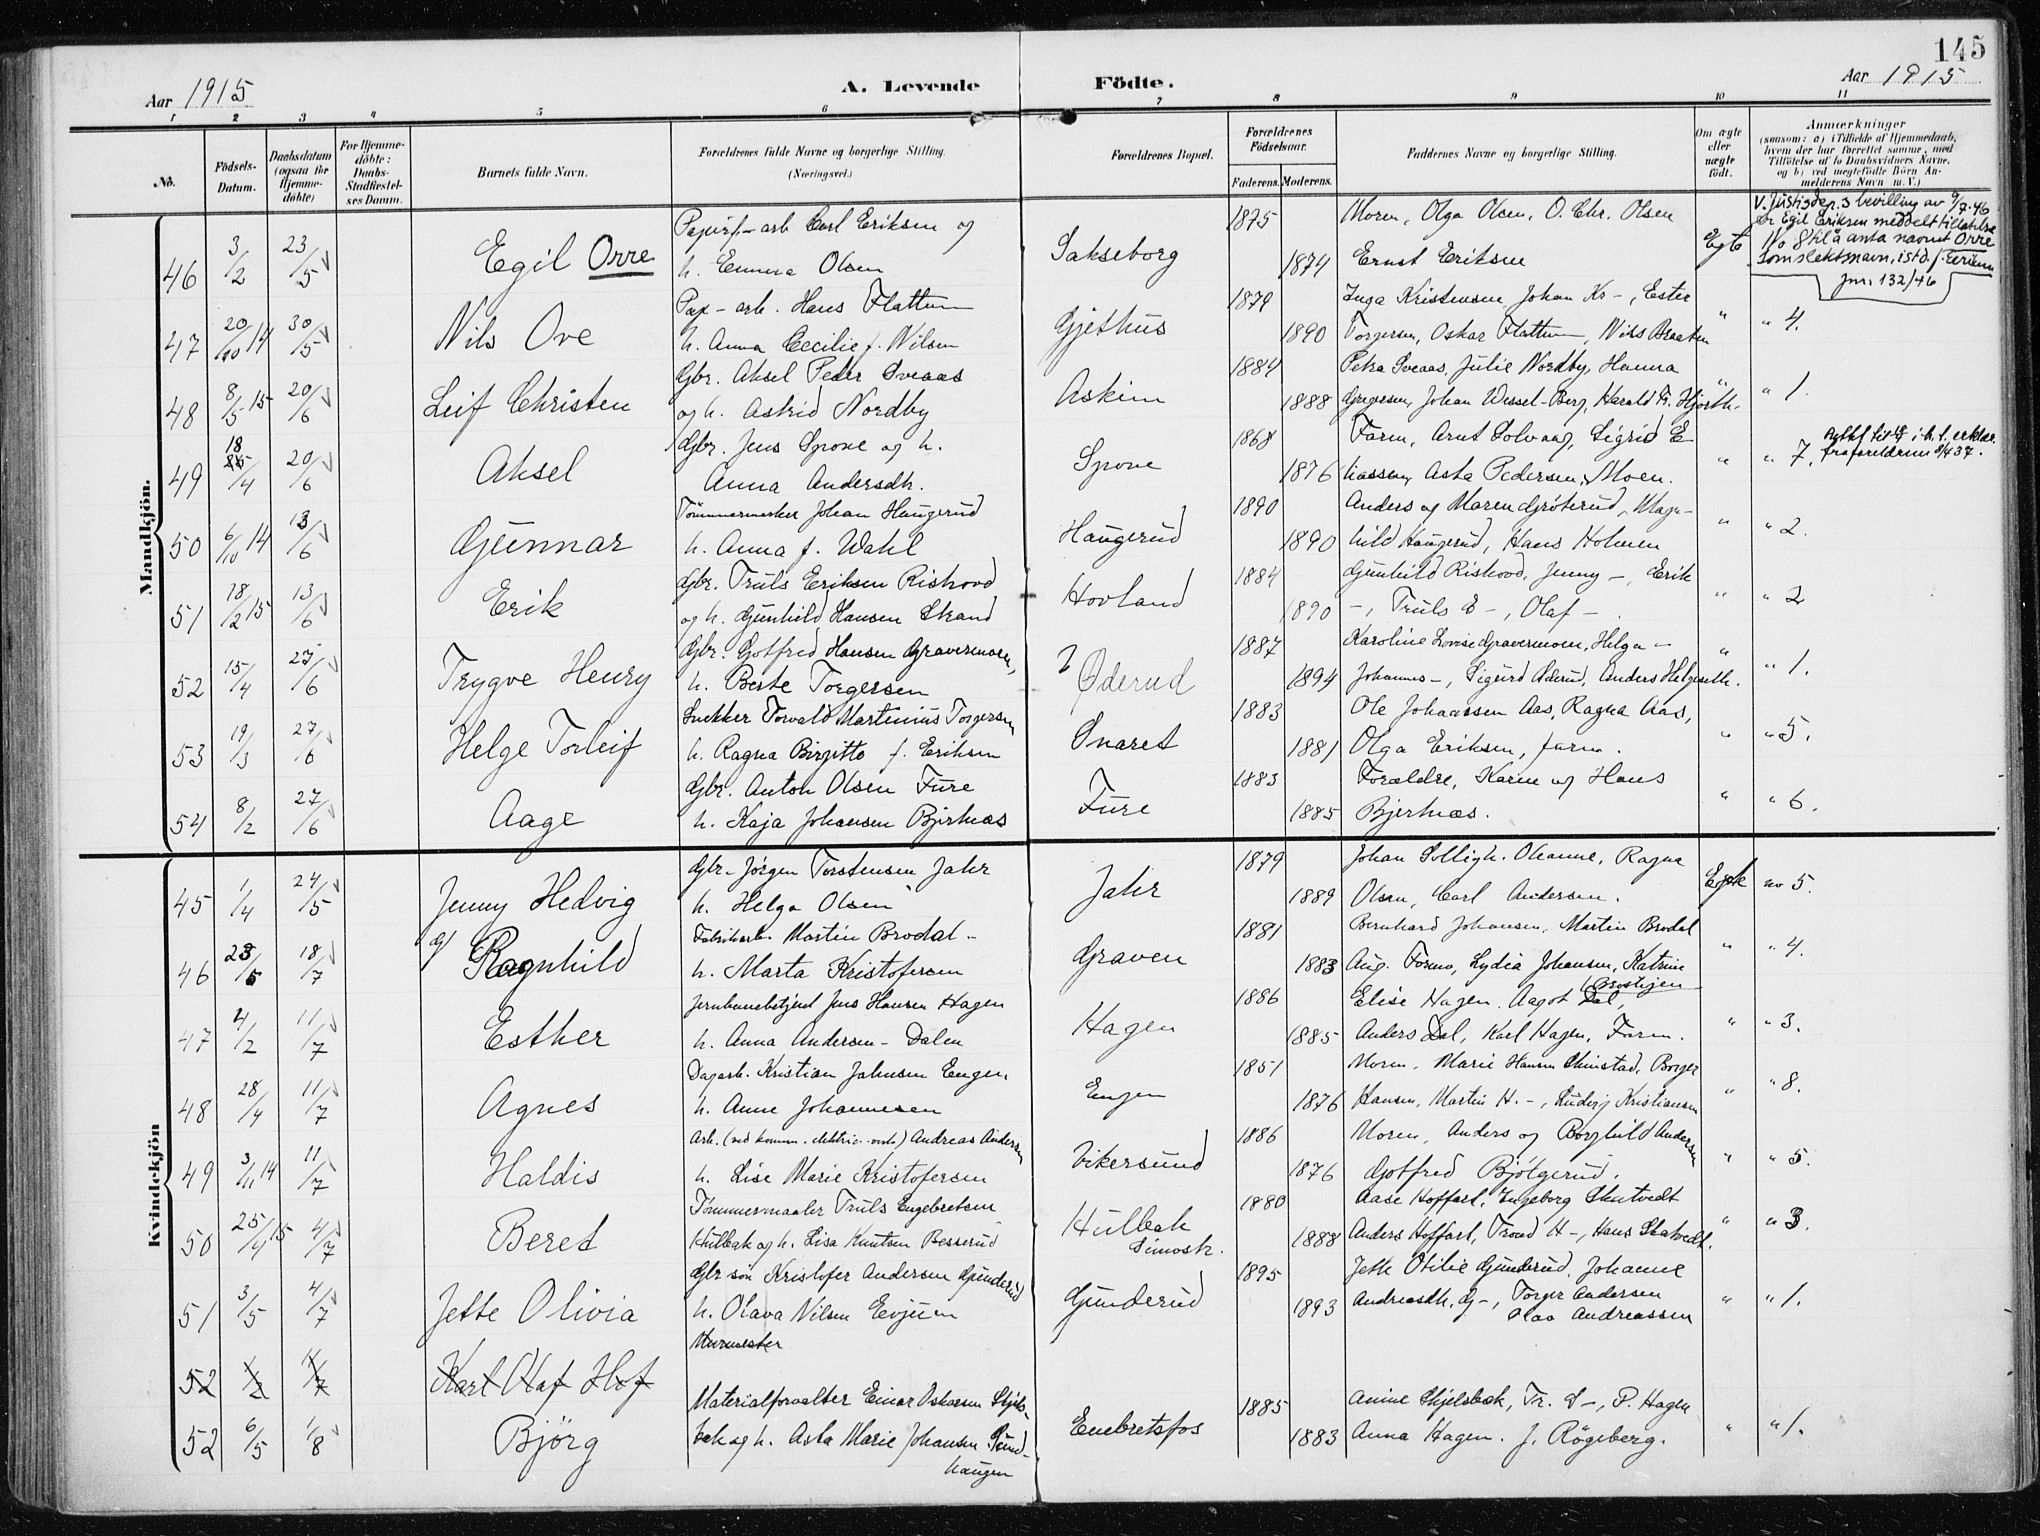 145
Aar 1915
A. Levende Födte.
Aar 1915
1 2 3 4 5 6 7 8 9 10 11
No.
Födsels-Datum.
Daabsdatum (ogsaa for Hjemme-döbte)
For Hjemme-döbte: Daabs-Stadfæstel-ses Datum.
Barnets fulde Navn.
Forældrenes fulde Navne og borgerlige Stilling. (Næringsvei.)
Forældrenes Bopæl.
Forældrenes Födselsaar.
Faderens. Moderens.
Faddernes Navne og borgerlige Stilling.
Om ægte eller uægte födt.
Anmærkninger
(saasom: a) i Tilfælde af Hjemmedaab, hvem der har forrettet samme, med Tilföielse af to Daabsvidners Navne, og b) ved uegtefödte Börn An-melderens Navn m. V.)
Mandkjön.
46 3/2 23/5 Egil Orre
Papirf-arb Carl Eriksen og
h. Emma Olsen
Sakseborg 1875 1874
Moren, Olga Olsen, O. Chr. Olsen
Ernst Eriksen
Egte No 8
V. Justisdep.s bevilling av 9/7-46
er Egil Eriksen meddelt tillatelse
til å anta navnet Orre
som slektsnavn, istd. f. Eriksen
Jnr. 132/46
47 20/10 14 30/5 Nils Ove
Pap-arb. Hans Flattum
h. Anna Cecilie f. Nilsen
Gjethus 1879 1890
Inga Kristensen, Johan Kr-, Ester
Torgersen, Oskar Flattum, Nils Braaten
" " 4.
48 8/5-15 20/6 Leif Christen
Gbr. Aksel Peder Sveaas
og h. Astrid Nordby
Askim 1884 1888
Petra Sveaas, Julie Nordby, Hanna
Gregersen, Johan Wessel-Berg, Harald Fr. Hjorth.
" " 1.
49 18/4 20/6 Aksel
Gbr. Jens Sprone og h.
Anna Andersdh.
Sprone 1868 1876
Farm, Arnt Solvaag, Sigrid E
liassen, Asta Pedersen, Moen.
" " 7.
50 6/10 14 13/6 Gunnar
Tömmermerker Johan Haugerud
h. Anna f. Wahl
Haugerud 1890 1890
Anders og Maren Gröterud, Magn-
hild Haugerud, Hans Holmen
" " 2.
51 18/2 15 13/6 Erik
Gbr. Truls Eriksen Riskovd
og h. Gunhild Hansen Strand
Hovland 1884 1890
Gunhild Riskovd, Jenny -, Erik
-, Truls E -, Olaf -.
" " 2
52 15/4 27/6 Trygve Henry
Gbr. Gotfred Hansen Gravermoen,
h. Berte Torgersen
Øderud 1887 1894
Karoline Lovise Gravermoen, Helga -
Johannes -, Sigurd Øderud, Anders Helgeseth.
" " 1.
53 19/3 27/6 Helge Torleif
Snekker Torvald Martinius Torgersen
h. Ragna Birgitte f. Eriksen
Snaret 1883 1881
Ole Johanssen Aas, Ragna Aas,
Olga Eriksen, farm.
" " 5.
54 8/2 27/6 Aage
Gbr. Anton Olsen Fure
h. Kaja Johansen Bjertnæs
Fure 1883 1885
Forældre, Karen og Hans
Bjertnæs.
" " 6.
Kvindekjön
45 1/4 24/5 Jenny Hedvig
Gbr. Jörgen Torstensen Jahr
h. Helga Olsen
Jahr 1879 1889
Johan Solligh. Oleanne, Ragna
Olsen, Carl Andersen.
Egte no 5.
46 23/5 18/7 Ragnhild
Fabrikarb. Martin Brodal -
h. Marta Kristofersen
Graven 1881 1883
Bernhard Johansen, Martin Brodal
Aug. Formo, Lydia Johansen, Katrine
Brostigen
" " 4.
47 4/2 11/7 Esther
Jernbanebetjent Jens Hansen Hagen
h. Anna Andersen-Dalen
Hagen 1886 1885
Elise Hagen. Aagot Dal,
Anders Dal, Karl Hagen, Farm.
" " 3.
48 28/4 11/7 Agnes
Dagarb. Kristian Johnsen Engen,
h. Anne Johannesen
Engen 1851 1876
Moren, Marie Hansen Skinstad, Borger
Hansen, Martin H.-, Ludvig Kristiansen
" " 8.
49 3/11 14 11/7 Haldis
Arb. (ved komm. elektric. verk) Andreas Andersen
h. Lise Marie Kristofersen
Vikersund 1886 1876
Moren, Anders og Borghild Andersen
Gotfred Bjölgerud.
" " 5.
50 25/4 15 4/7 Beret
Tömmermaaler Truls Engebretsen
Hulbak og h. Lisa Knutsen Besserud
Hulbak
Simostr.
1880 1888
Aase Hoffart, Ingeborg Skatvedt
Anders Hoffart, Trond H-, Hans Skatvedt.
" " 3.
51 3/5 4/7 Jette Olivia
Gbr sön Kristofer Andersen Gunderud
h. Olava Nilsen Evjuen
Gunderud 1895 1893
Jette Otilie Gunderud, Johanne
Andreasdh. G-, Torger Andersen
Olaa Andreassen
" " 1.
52 1/2 Karl Olaf Hof
Murmester
52 6/5 1/8 Björg
Materialforvalter Einar Oskarsen Skjels-
bek og h. Asta Marie Johansen Sund-
haugen
Enebretsfos 1885 1883
Anine Skjelsbek, Tr. S-, P. Hagen
Anna Hagen. J. Rögeberg.
" " 1.